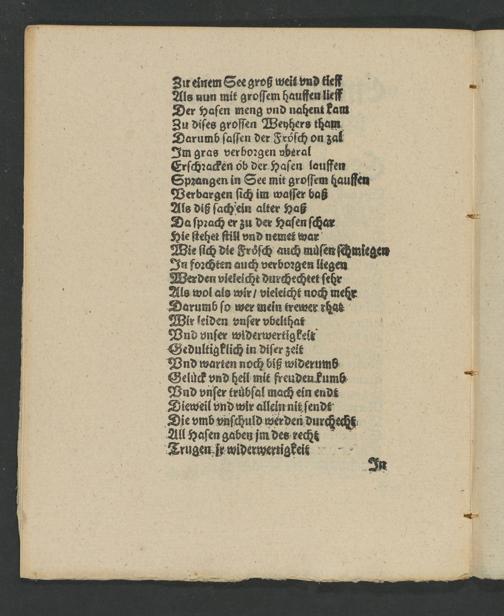 Zu einem See groß weit vnd tieff
Als nun mit grossem hauffen lieff
Der Hasen meng vnd nahent kam
Zu dises grossen Weyhers tham
Darumb sassen der Frösch on zal
Im gras verborgen vberal
Erschracken ob der Hasen lauffen
Sprangen in See mit grossem hauffen
Verbargen sich im wasser baß
Als diß sach ein alter Haß
Da sprach er zu der Hasen schar
Hie stehet still vnd nemet war
Wie sich die Frösch auch müsen schmiegen
In forchten auch verborgen liegen
Werden vieleicht durchechtet sehr
Als wol als wir / vieleicht noch mehr
Darumb so wer mein trewer rhat
Wir leiden vnser vbelthat
Vnd vnser widerwertigkeit
Gedultigklich in diser zeit
Vnd warten noch biß widerumb
Gelück vnd heil mit freuden kumb
Vnd vnser trübsal mach ein endt
Dieweil vnd wir allein nit sendt
Die vmb vnschuld werden durchecht
All Hasen gaben jm des recht
Trugen jr widerwertigkeit
In